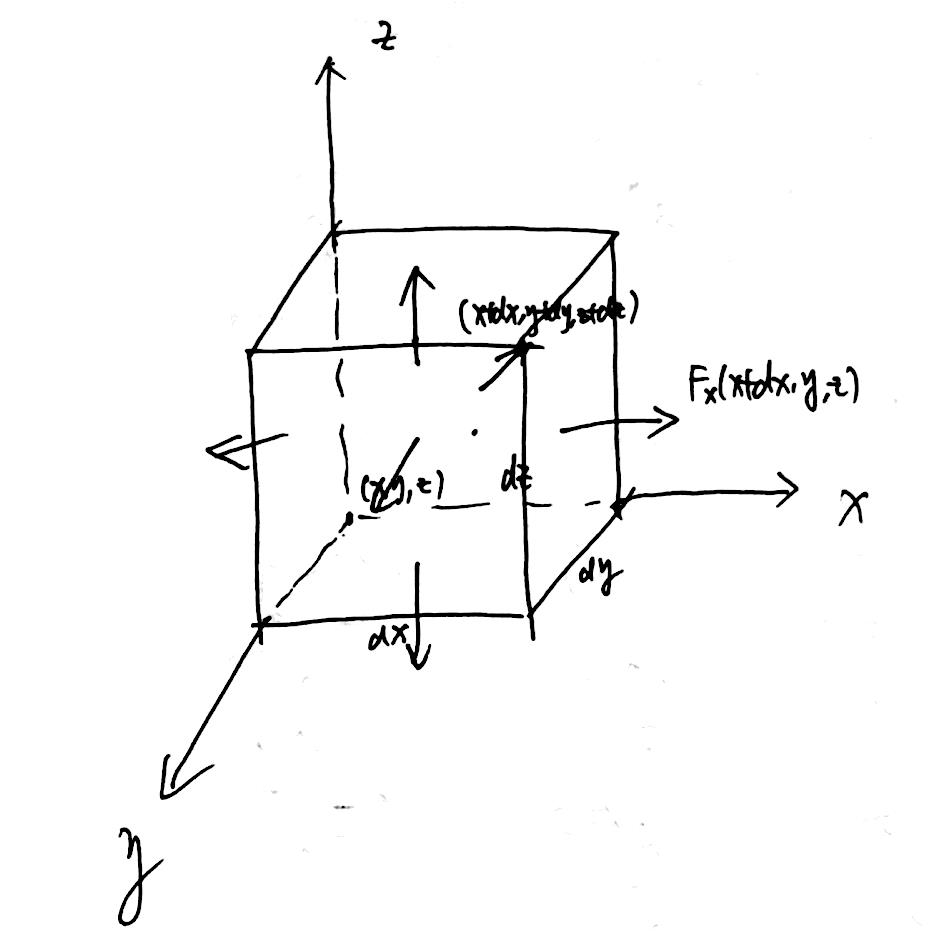 z
(x+dx,y+dy,z+dz)
Fx(x+dx,y,z)
(x,y,z)
dz
x
dy
dx
y